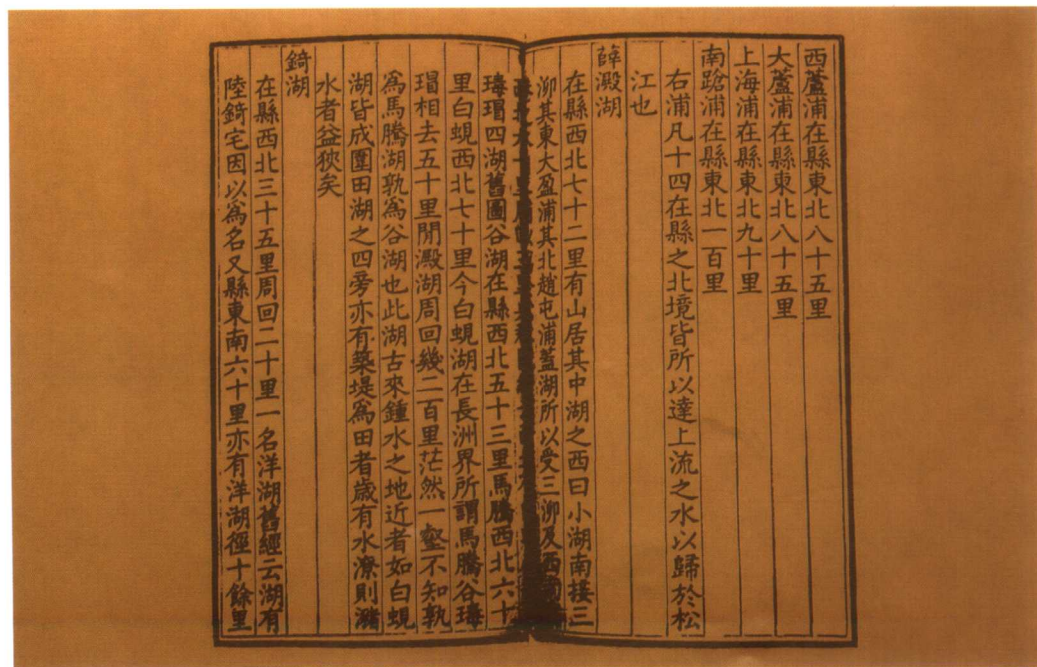 西蘆浦在縣東北八十五里
大蘆浦在縣東北八十五里
上海浦在縣東北九十里
南蹌浦在縣東北一百里
右浦凡十四在縣之北境皆所以達上流之水以歸於松
江也
薛澱湖
在縣西北七十二里有山居其中湖之西曰小湖南接三
泖其東大盈浦其北趙屯浦蓋湖所以受三泖及西南
瑇瑁四湖舊圖谷湖在縣西北五十三里馬騰西北六十
里白蜆西北七十里今白蜆湖在長洲界所謂馬騰谷瑇
瑁相去五十里閒澱湖周回幾二百里茫然一壑不知孰
爲馬騰湖孰爲谷湖也此湖古來鍾水之地近者如白蜆
湖皆成圍田湖之四旁亦有築堤爲田者歲有水潦則瀦
水者益狹矣
錡湖
在縣西北三十五里周回二十里一名洋湖舊經云湖有
陸錡宅因以爲名又縣東南六十里亦有洋湖徑十餘里